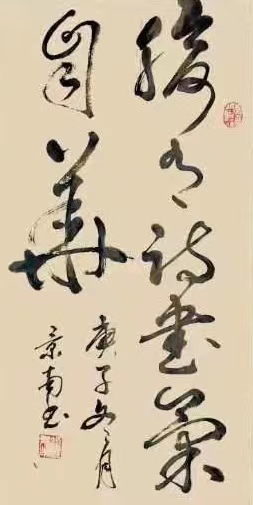 腹有詩書氣
自華
庚子冬月
景南书